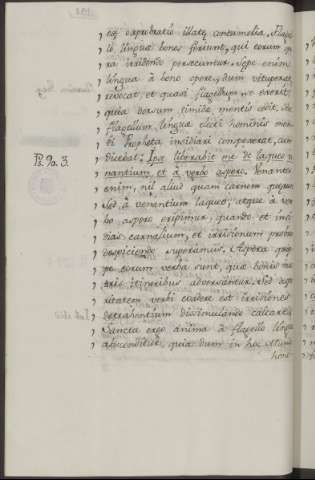 est exprobratio illatæ contumeliæ. Flagel
lo linguæ bonos feriunt, qui eorum ope
ra irridendo persecuntur. Sæpe enim
lingua à bono opere, dum vituperat
revocat, et quasi flagellum se exerit,
quia dorsum timidæ mentis cædit. Hoc
flagellum linguæ electi hominis men
ti Propheta insidiari conspexerat, cum
dicebat: Ipse liberabit me de laqueo ve
nantium et à verbo aspero. Venantes
enim, nil aliud quam carnem quærunt
Sed à venantium laqueo, atque à ver
bo aspero eripimur, quando et insi
dias carnalium, et irrisionum probra
despiciendo superamus. Aspera quip
pe eorum verba sunt, quæ bonis nos
tris itineribus adversantur. Sed aspe
ritatem verbi evadere est irrisiones
detrahentium dissimulando calcare.
Sancta ergo anima à flagello linguæ
absconditur, quia dum in hoc mundo
hono
Ps. 90. 3.